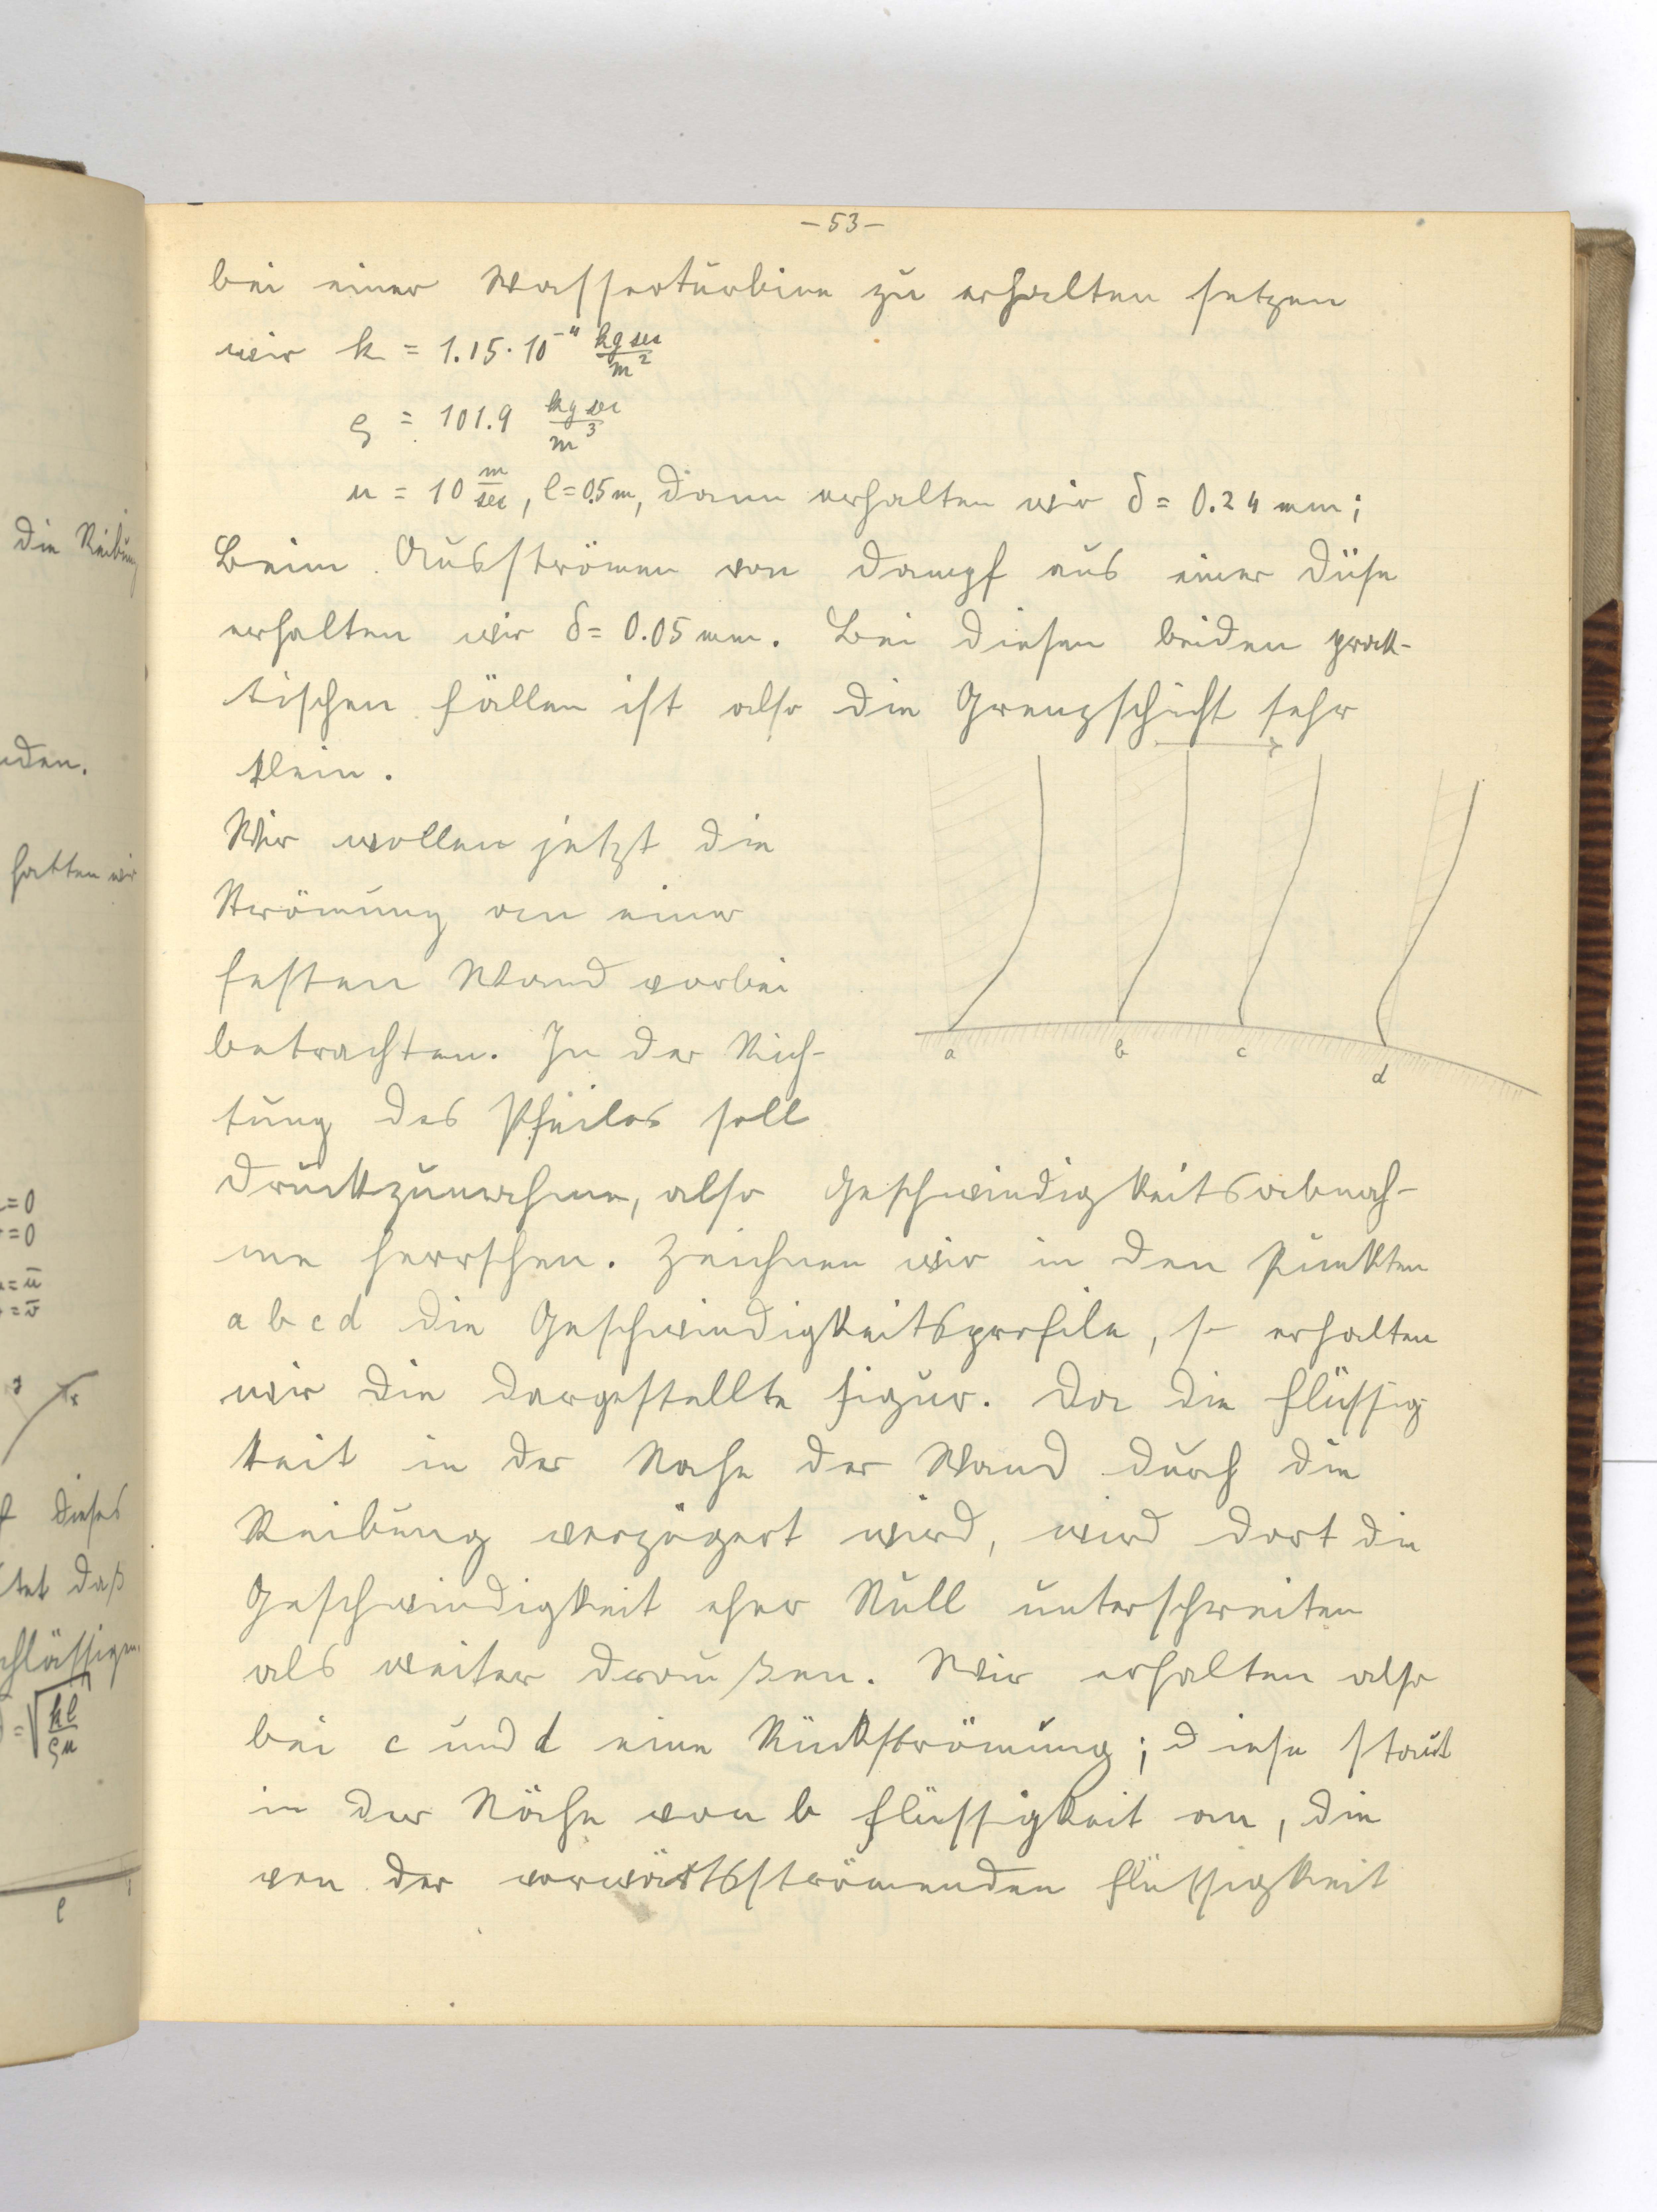 - 53 -
bei einer Wasserturbine zu erhalten setzen
wir k = 1.15 · 10⁻⁴ kg sec / m²
ρ = 101.9 kg sec / m³
u = 10 m/sec, l = 0.5 m, dann erhalten wir δ = 0.24 mm;
Beim Ausströmen von Dampf aus einer Düse
erhalten wir δ = 0.05 mm. Bei diesen beiden prak-
tischen Fällen ist also die Grenzschicht sehr
klein.
Wir wollen jetzt die
Strömung an einer
festen Wand vorbei
betrachten. In der Rich-
tung des Pfeiles soll
Druckzunahme, also Geschwindigkeitsabnah-
me herrschen. Zeichnen wir in den Punkten
a b c d die Geschwindigkeitsprofile, so erhalten
wir die dargestellte Figur. Da die Flüssig
keit in der Nähe der Wand durch die
Reibung verzögert wird, wird dort die
Geschwindigkeit eher Null unterschreiten
als weiter draußen. Wir erhalten also
bei c und d eine Rückströmung; diese staut
in der Nähe von b Flüssigkeit an, die
von der vorwärtsströmenden Flüssigkeit
a b c d
die Reibung
den.
hatten wir
= 0
= 0
= ū
= v̄
dieses
tet daß
chlässigen
= √(kl/ρu)
l